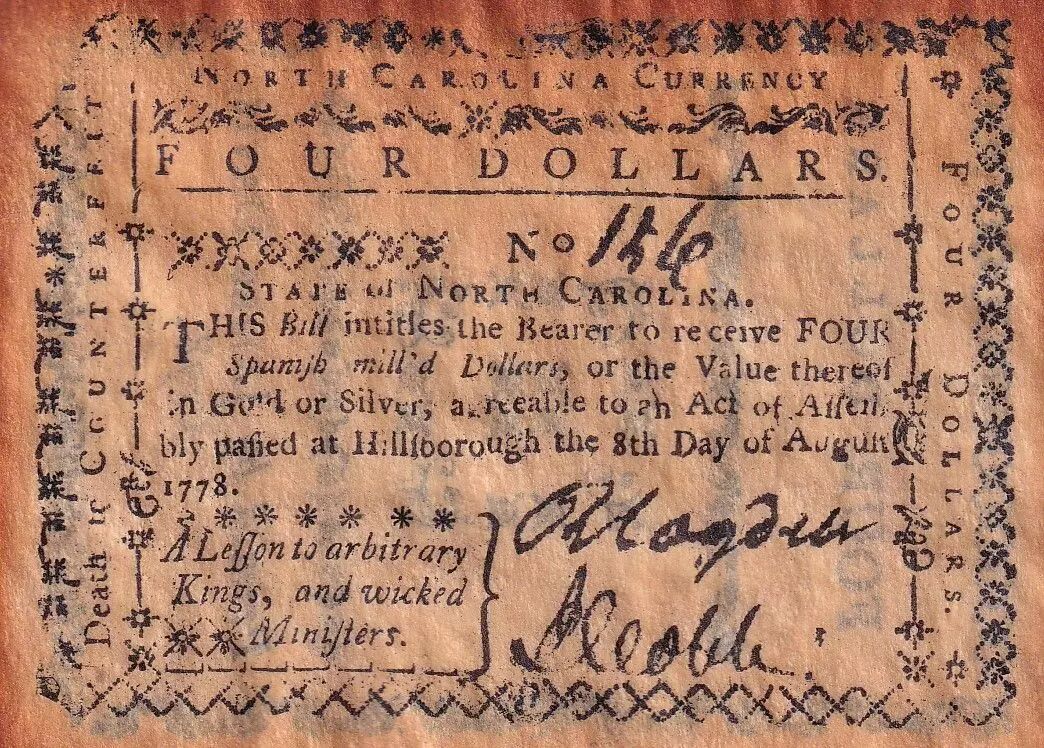 NORTH CAROLINA CURRENCY
FOUR DOLLARS.
No 156
STATE of NORTH CAROLINA.
THIS Bill intitles the Bearer to receive FOUR
Spaniſh mill'd Dollars, or the Value thereof
in Gold or Silver, agreeable to an Act of Aſſem
bly paſſed at Hillſborough the 8th Day of Auguſt
1778.
A Leſſon to arbitrary
Kings, and wicked
Miniſters.
Death to COUNTERFEIT
FOUR DOLLARS.